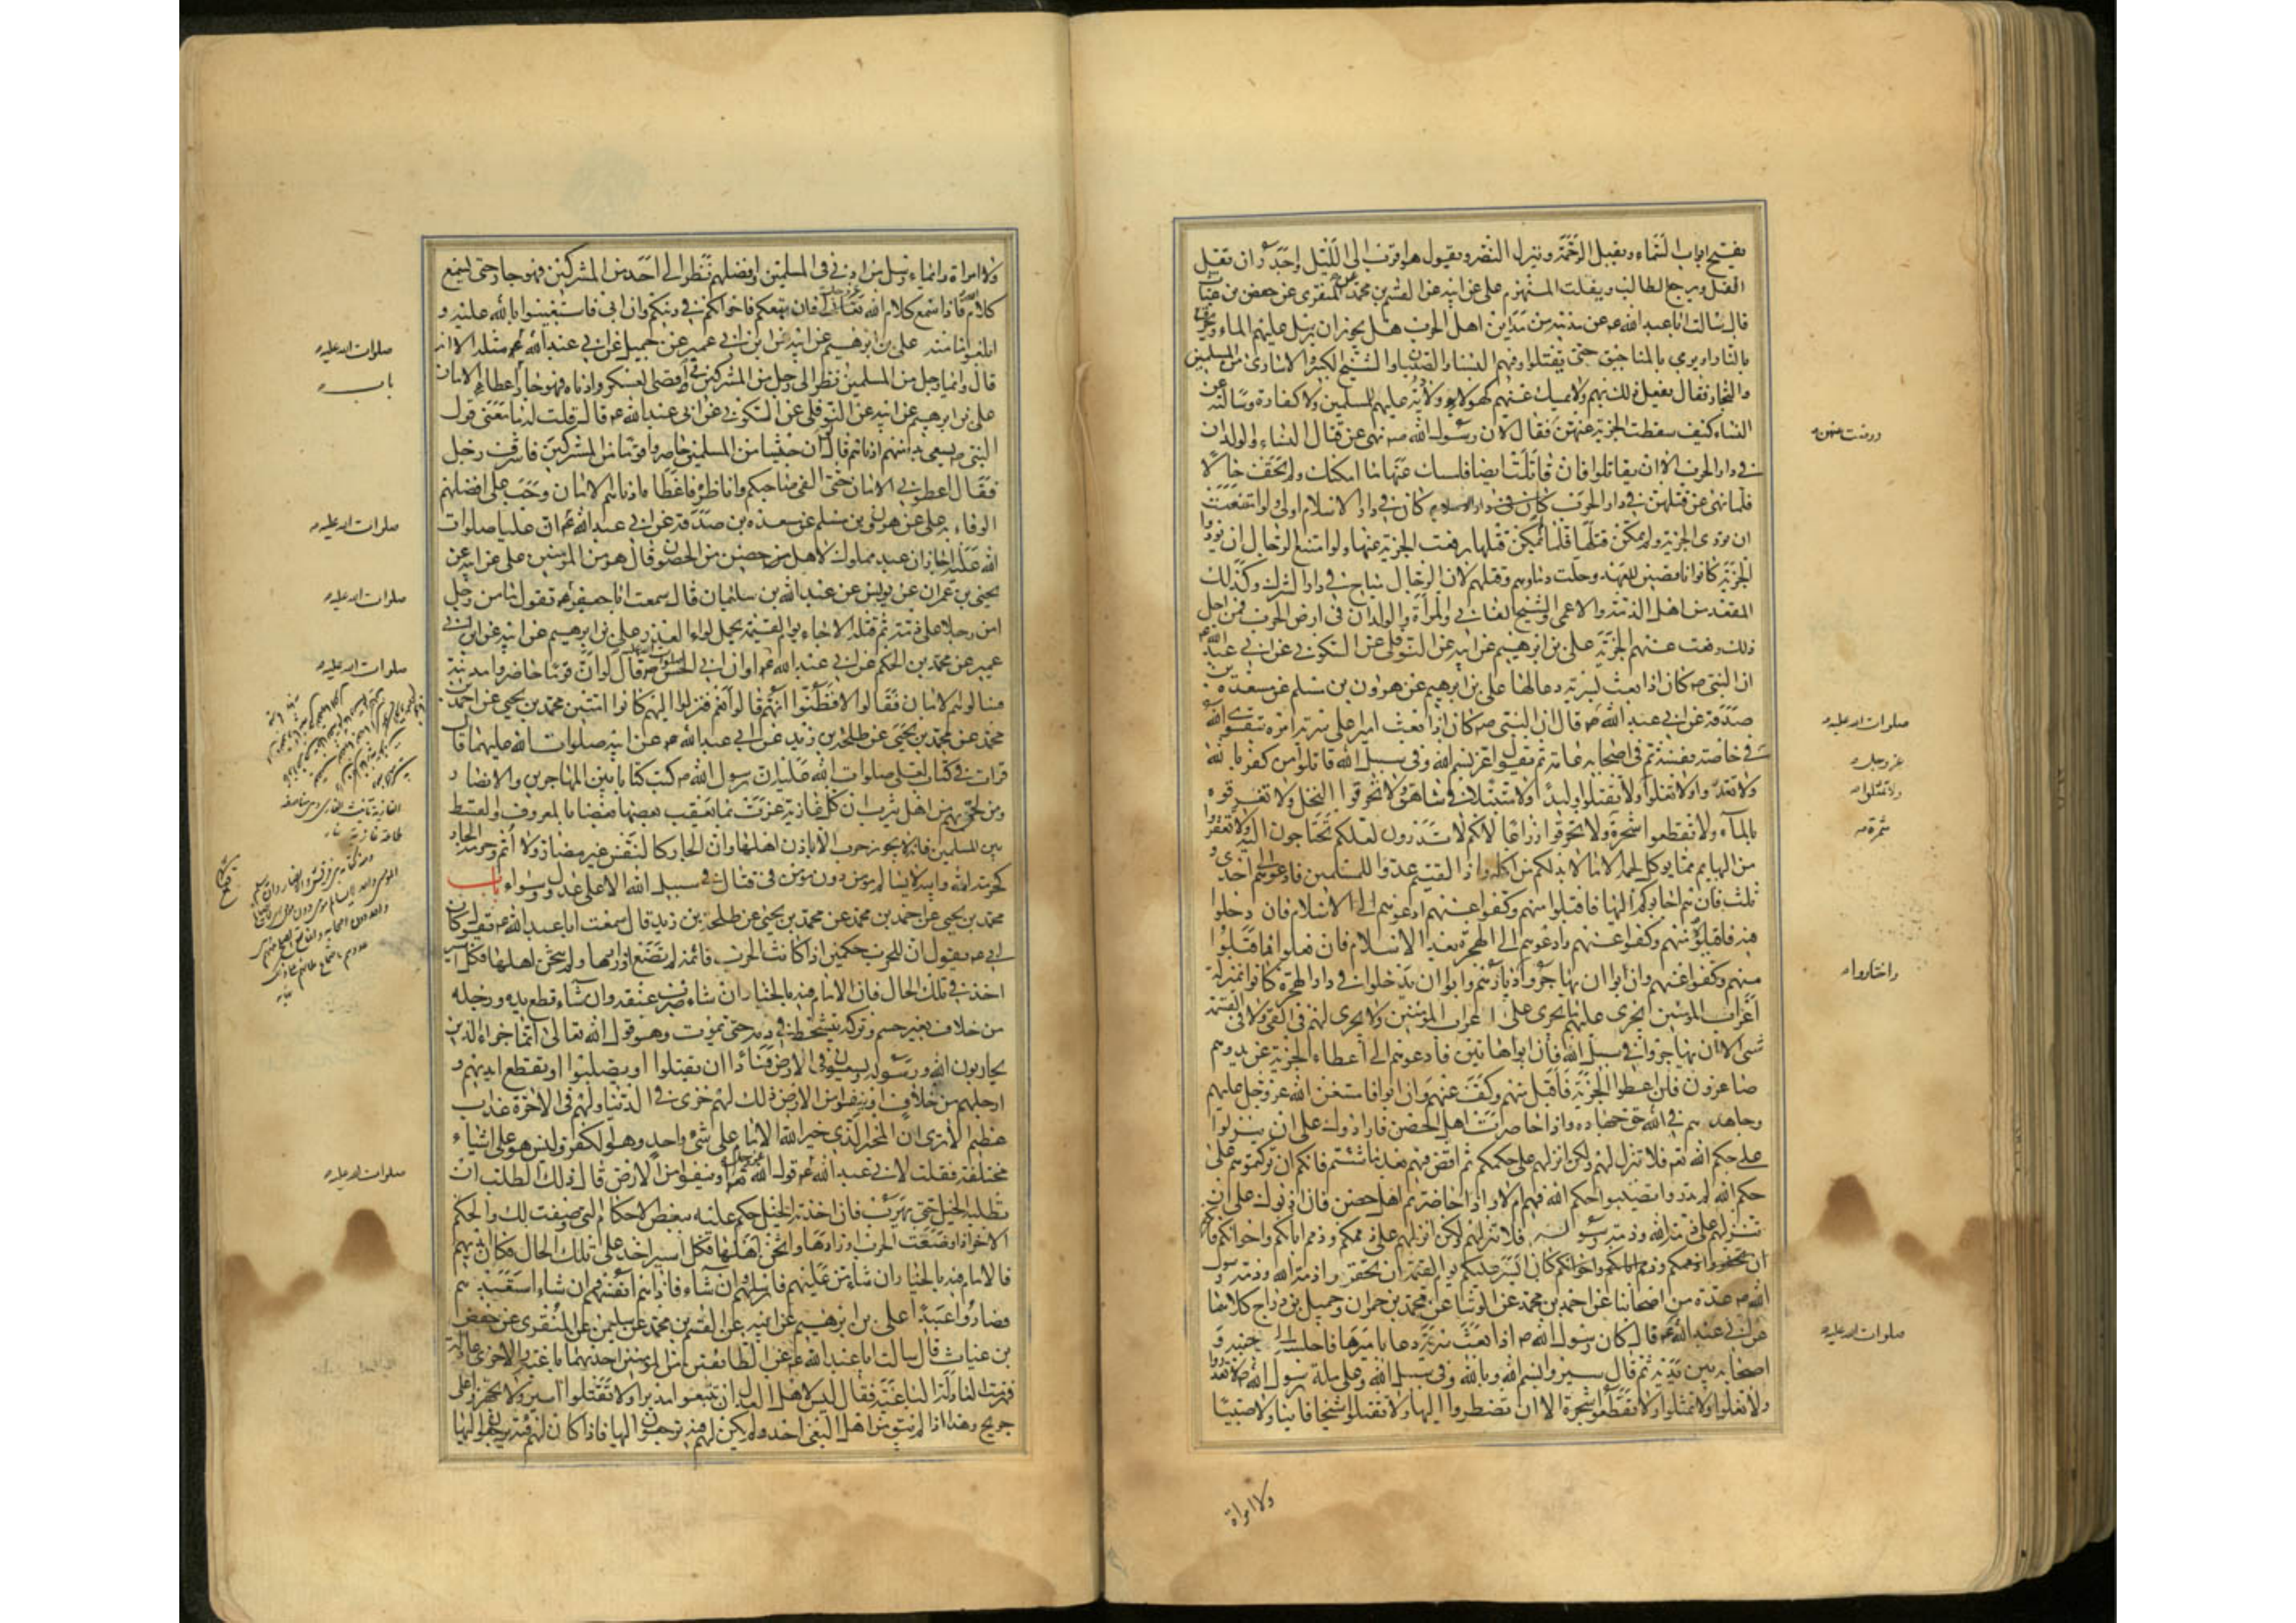 يفتح ابواب السماء ويقبل الرحمة وينزل النصر ويقول هو اقرب الى الليل واجدر ان يقل
القتل ويرجع الطالب ويفلت المنهزم على عن ابيه عن القسم بن محمد عن المنقرى عن حفص بن غياث
قال سالت ابا عبد الله عم عن مدينة من مداين اهل الحرب هل يجوز ان يرسل عليهم الماء وتحرق
بالنار او يرمى بالمناجيق حتى يقتلوا وفيهم النساء والصبيان والشيخ الكبير والاسارى من المسلمين
والتجار فقال يفعل ذلك بهم ولا يمسك عنهم لهؤلاء ولا دية عليهم للمسلمين ولا كفارة وسالته عن
النساء كيف سقطت الجزية عنهن فقال لان رسول الله ص نهى عن قتال النساء والولدان
فى دار الحرب الا ان يقاتلوا فان قاتلت ايضا فامسك عنها ما امكنك ولم تخف خللا
فلما نهى عن قتلهن فى دار الحرب كان فى دار الاسلام اولى ولو امتنعت
ان تودى الجزية ولم يمكن قتلها فلما لم يمكن قتلها رفعت الجزية عنها ولو امتنع الرجال ان يؤدوا
الجزية كانوا ناقضين للعهد وحلت دماؤهم وقتلهم لان الرجال مباح فى دار الشرك وكذلك
المقعد من اهل الذمة والاعمى والشيخ الفانى والمراة والولدان فى ارض الحرب فمن اجل
ذلك رفعت عنهم الجزية على بن ابرهيم عن ابيه عن النوفلى عن السكونى عن ابى عبد الله عم
ان النبى ص كان اذا بعث بسرية دعا لها على بن ابرهيم عن هرون بن مسلم عن مسعدة بن
صدقة عن ابى عبد الله عم قال ان النبى ص كان اذا بعث اميرا على سرية امره بتقوى الله
فى خاصة نفسه ثم فى اصحابه عامة ثم يقول اغز بسم الله وفى سبيل الله قاتلوا من كفر بالله
ولا تغدروا ولا تغلوا ولا تقتلوا وليدا ولا متبتلا فى شاهق ولا تحرقوا النخل ولا تغرقوه
بالماء ولا تقطعوا شجرة ولا تحرقوا زرعا لانكم لا تدرون لعلكم تحتاجون اليه ولا تعقروا
من البهايم مما يوكل لحمه الا ما لا بد لكم من اكله واذا لقيتم عدوا للمسلمين فادعوهم الى احدى
ثلث فان هم اجابوكم اليها فاقبلوا منهم وكفوا عنهم ادعوهم الى الاسلام فان دخلوا
فيه فاقبلوه منهم وكفوا عنهم وادعوهم الى الهجرة بعد الاسلام فان فعلوا فاقبلوا
منهم وكفوا عنهم وان ابوا ان يهاجروا وابوا ان يدخلوا فى دار الهجرة كانوا بمنزلة
اعراب المؤمنين يجرى عليهم ما يجرى على اعراب المؤمنين ولا يجرى لهم فى الفئ ولا فى القسمة
شئ الا ان يهاجروا فى سبيل الله فان ابوا هاتين فادعوهم الى اعطاء الجزية عن يد وهم
صاغرون فان اعطوا الجزية فاقبل منهم وكف عنهم وان ابوا فاستعن الله عز وجل عليهم
وجاهدهم فى الله حق جهاده واذا حاصرت اهل الحصن فارادوك على ان ينزلوا
على حكم الله فلا تنزل لهم ولكن انزلهم على حكمكم ثم اقض فيهم بعد ما شئتم فانكم ان تركتموهم على
حكم الله لم تدروا تصيبوا حكم الله فيهم ام لا واذا حاصرتم اهل حصن فان اذنوك على ان
تنزلهم على ذمة الله وذمة رسوله فلا تنزلهم ولكن انزلهم على ذممكم وذمم ابائكم واخوانكم فانكم
ان تخفروا ذممكم وذمم ابائكم واخوانكم كان ايسر عليكم يوم القيمة من ان تخفروا ذمة الله وذمة رسول
الله ص عدة من اصحابنا عن احمد بن محمد عن الوشا عن محمد بن حمران وجميل بن دراج كلاهما
عن ابى عبد الله عم قال كان رسول الله ص اذا بعث سرية دعا باميرها فاجلسه الى جنبه و
اصحابه بين يديه ثم قال سيروا بسم الله وبالله وفى سبيل الله وعلى ملة رسول الله ص لا تغدروا
ولا تغلوا ولا تمثلوا ولا تقطعوا شجرة الا ان تضطروا اليها ولا تقتلوا شيخا فانيا ولا صبيا
ولا امراة
ورفعت عنهن
صلوات الله عليه
عز وجل
ولا تمثلوا
شجرة
واختاروا
صلوات الله عليه
ولا امراة وايما رجل من ادنى المسلمين او افضلهم نظر الى احد من المشركين فهو جار حتى يسمع
كلام الله فاذا سمع كلام الله فان تبعكم فاخوكم فى دينكم وان ابى فاستعينوا بالله عليه و
ابلغوه مامنه على بن ابرهيم عن ابيه عن ابن ابى عمير عن جميل عن ابى عبد الله عم مثله الا انه
قال وايما رجل من المسلمين نظر الى رجل من المشركين فى اقصى العسكر وادناه فهو جار اعطاء الامان
على بن ابرهيم عن ابيه عن النوفلى عن السكونى عن ابى عبد الله عم قال قلت له ما معنى قول
النبى ص يسعى بذمتهم ادناهم قال لو ان جيشا من المسلمين حاصروا قوما من المشركين فاشرف رجل
فقال اعطونى الامان حتى القى صاحبكم واناظره فاعطاه ادناهم الامان وجب على افضلهم
الوفاء به على عن هرون بن مسلم عن مسعدة بن صدقة عن ابى عبد الله عم ان عليا صلوات
الله عليه اجاز امان عبد مملوك لاهل حصن من الحصون وقال هو من المؤمنين على عن ابيه عن
يحيى بن عمران عن يونس عن عبد الله بن سليمان قال سمعت ابا جعفر عم يقول ما من رجل
امن رجلا على ذمته ثم قتله الا جاء يوم القيمة يحمل لواء الغدر على بن ابرهيم عن ابيه عن ابن ابى
عمير عن محمد بن الحكم عن ابى عبد الله عم او ان ابى الحسن قال لو ان قوما حاصروا مدينة
فسالوهم الامان فقالوا لا فظنوا انهم قالوا نعم فنزلوا اليهم كانوا امنين محمد بن يحيى عن احمد بن
محمد عن محمد بن يحيى عن طلحة بن زيد عن ابى عبد الله عم عن ابيه صلوات الله عليهما قال
قرات فى كتاب لعلى صلوات الله عليه ان رسول الله ص كتب كتابا بين المهاجرين والانصار و
من لحق بهم من اهل يثرب ان كل غازية غزت بما يعقب بعضها بعضا بالمعروف والقسط
بين المسلمين فانه لا يجوز حرب الا باذن اهلها وان الجار كالنفس غير مضار ولا اثم وحرمة الجار
كحرمة امه وابيه لا يسالم مؤمن دون مؤمن فى قتال فى سبيل الله الا على عدل وسواء باب
محمد بن يحيى عن احمد بن محمد عن محمد بن يحيى عن طلحة بن زيد قال سمعت ابا عبد الله عم يقول كان
ابى عم يقول ان للحرب حكمين اذا كانت الحرب قائمة لم تضع اوزارها ولم يثخن اهلها فكل اسير
اخذ فى تلك الحال فان الامام فيه بالخيار ان شاء ضرب عنقه وان شاء قطع يده ورجله
من خلاف بغير حسم وتركه يتشحط فى دمه حتى يموت وهو قول الله تعالى انما جزاء الذين
يحاربون الله ورسوله ويسعون فى الارض فسادا ان يقتلوا او يصلبوا او تقطع ايديهم و
ارجلهم من خلاف او ينفوا من الارض ذلك لهم خزى فى الدنيا ولهم فى الاخرة عذاب
عظيم الا ترى ان المخير الذى خير الله الامام على شئ واحد وهو الكفر وليس هو على اشياء
مختلفة فقلت لابى عبد الله عم قول الله او ينفوا من الارض قال ذلك الطلب ان
تطلبه الخيل حتى يهرب فان اخذته الخيل حكم عليه ببعض الاحكام التى وصفت لك والحكم
الاخر اذا وضعت الحرب اوزارها واثخن اهلها فكل اسير اخذ على تلك الحال فكان فى ايديهم
فالامام فيه بالخيار ان شاء من عليهم فارسلهم وان شاء فاداهم انفسهم وان شاء استعبدهم
فصاروا عبيدا على بن ابرهيم عن ابيه عن القسم بن محمد عن سليمن عن المنقرى عن حفص
بن غياث قال سالت ابا عبد الله عم عن الطائفتين من المؤمنين احديهما باغية والاخرى عادلة
فهزمت العادلة الباغية فقال ليس لاهل العدل ان يتبعوا مدبرا ولا يقتلوا اسيرا ولا يجهزوا على
جريح وهذا اذا لم يبق من اهل البغى احد ولم يكن لهم فئة يرجعون اليها فاذا كان لهم فئة يرجعون اليها
صلوات الله عليه
باب
صلوات الله عليه
صلوات الله عليه
صلوات الله عليه
صلوات الله عليه